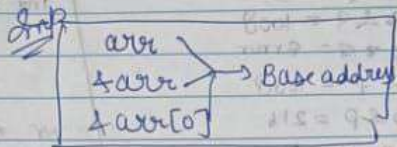 Imp
arr
&arr → Base address
&arr[0]